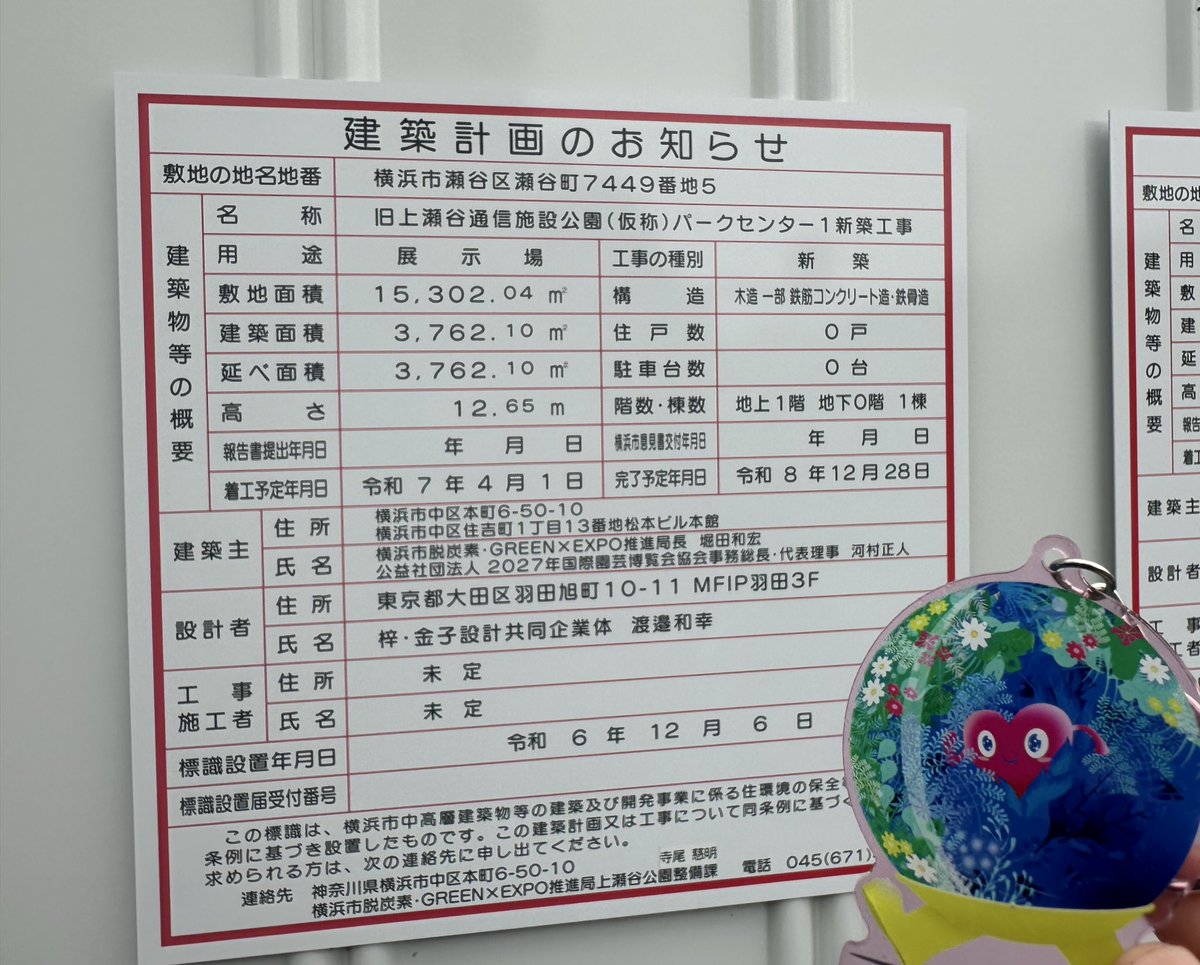 建築計画のお知らせ
敷地の地名地番 横浜市瀬谷区瀬谷町7449番地5
建築物等の概要
名称 旧上瀬谷通信施設公園(仮称)パークセンター1新築工事
用途 展示場 工事の種別 新築
敷地面積 15,302.04 ㎡ 構造 木造 一部 鉄筋コンクリート造・鉄骨造
建築面積 3,762.10 ㎡ 住戸数 0戸
延べ面積 3,762.10 ㎡ 駐車台数 0台
高さ 12.65 m 階数・棟数 地上1階 地下0階 1棟
報告書提出年月日 年 月 日 横浜市意見書交付年月日 年 月 日
着工予定年月日 令和 7 年 4 月 1 日 完了予定年月日 令和 8 年12月28日
建築主
住所 横浜市中区本町6-50-10
横浜市中区住吉町1丁目13番地松本ビル本館
氏名 横浜市脱炭素・GREEN×EXPO推進局長 堀田和宏
公益社団法人 2027年国際園芸博覧会協会事務総長・代表理事 河村正人
設計者
住所 東京都大田区羽田旭町10-11 MFIP羽田3F
氏名 梓・金子設計共同企業体 渡邉和幸
工事施工者
住所 未定
氏名 未定
標識設置年月日 令和 6 年 12 月 6 日
標識設置届受付番号
この標識は、横浜市中高層建築物等の建築及び開発事業に係る住環境の保全
条例に基づき設置したものです。この建築計画又は工事について同条例に基づく
求められる方は、次の連絡先に申し出てください。
連絡先 神奈川県横浜市中区本町6-50-10
横浜市脱炭素・GREEN×EXPO推進局上瀬谷公園整備課 寺尾 慈明 電話 045(671)
敷地の地
建築物等の概要
名
用
敷
建
延
高
報告
着工
建築主
設計者
工事